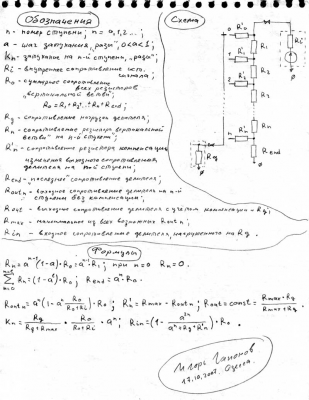 Обозначения
n - номер ступени; n = 0,1,2...;
a - шаг затухания „разы", 0<a<1;
Kn - затухание на n-й ступени, „разы";
Ri - внутреннее сопротивление ист. сигнала;
Ro - суммарное сопротивление
всех резисторов
„вертикальной ветви";
Ro = R1 + R2 ... + Rn + Rend;
Rg - сопротивление нагрузки делителя;
Rn - сопротивление резистора вертикальной
ветви" на n-й ступени;
R'n - сопротивление резистора компенсации
изменения выходного сопротивления
делителя на n-й ступени;
Rend - „последнее" сопротивление делителя;
Rout n - выходное сопротивление делителя на n-й
ступени без компенсации;
Rout - выходное сопротивление делителя с учётом компенсации и Rg;
Rmax - максимальное из всех возможных Rout n;
Rin - входное сопротивление делителя, нагруженного на Rg.
Схема
R'o
R1
R'1
R2
R'2
Rn
R'n
Rend
Rg
Ri
Формулы
Rn = a^(n-1)(1-a)·Ro = a^(n-1)·R1; при n=0 Rn=0.
Rn = (1-a^n)·Ro; Rend = a^n·Ro.
Rout n = a^n(1-a^n Ro/(Ro+Ri))·Ro; R'n = Rmax - Rout n; Rout = const = Rmax·Rg/(Rmax+Rg)
Kn = Rg/(Rg+Rmax) · Ro/(Ro+Ri) · a^n; Rin = (1 - a^2n/(a^n+Rg+R'n)·Ro)·Ro.
Игорь Гапонов
17.10.2007. Одесса.